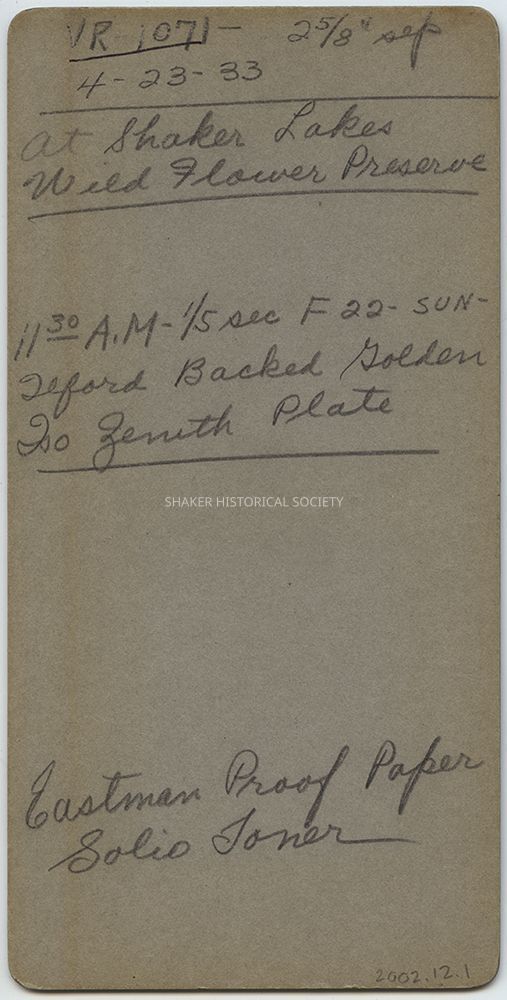 VR 1071- 2 5/8" sep
4-23-33
at Shaker Lakes
Wild Flower Preserve
11 30 A.M - 1/5 sec F 22 - SUN-
Backed Golden
Iso Zenith Plate
SHAKER HISTORICAL SOCIETY
Eastman Proof Paper
Solio Toner
2002.12.1